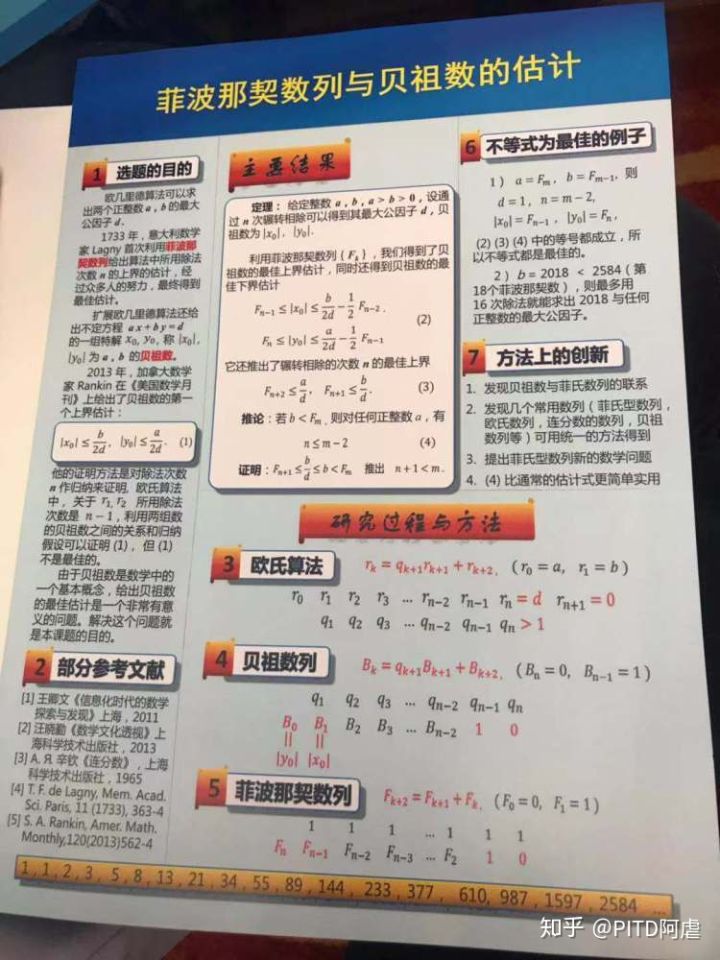 菲波那契数列与贝祖数的估计
1 选题的目的
欧几里德算法可以求
出两个正整数 a , b 的最大
公因子 d .
1733 年，意大利数学
家 Lagny 首次利用菲波那
契数列给出算法中所用除法
次数 n 的上界的估计，经
过众多人的努力，最终得到
最佳估计。
扩展欧几里德算法还给
出不定方程 ax+by=d
的一组特解 x₀, y₀, 称 |x₀|,
|y₀| 为 a , b 的贝祖数。
2013 年，加拿大数学
家 Rankin 在《美国数学月
刊》上给出了贝祖数的第一
个上界估计：
|x₀| ≤ b/2d , |y₀| ≤ a/2d . (1)
他的证明方法是对除法次数
n 作归纳来证明, 欧氏算法
中，关于 r₁, r₂ 所用除法
次数是 n − 1，利用两组数
的贝祖数之间的关系和归纳
假设可以证明 (1)，但 (1)
不是最佳的。
由于贝祖数是数学中的
一个基本概念，给出贝祖数
的最佳估计是一个非常有意
义的问题。解决这个问题就
是本课题的目的。
2 部分参考文献
[1] 王卿文《信息化时代的数学
探索与发现》上海，2011
[2] 汪晓勤《数学文化透视》上
海科学技术出版社，2013
[3] А. Я. 辛钦《连分数》，上海
科学技术出版社，1965
[4] T. F. de Lagny, Mem. Acad.
Sci. Paris, 11 (1733), 363-4
[5] S. A. Rankin, Amer. Math.
Monthly,120(2013)562-4
主要结果
定理： 给定整数 a , b , a > b > 0 , 设通
过 n 次辗转相除可以得到其最大公因子 d，贝
祖数为 |x₀|， |y₀|.
利用菲波那契数列 {Fₖ}，我们得到了贝
祖数的最佳上界估计，同时还得到贝祖数的最
佳下界估计
Fₙ₋₁ ≤ |x₀| ≤ b/2d − 1/2 Fₙ₋₂ ,
Fₙ ≤ |y₀| ≤ a/2d − 1/2 Fₙ₋₁
(2)
它还推出了辗转相除的次数 n 的最佳上界
Fₙ₊₂ ≤ a/d , Fₙ₊₁ ≤ b/d . (3)
推论：若 b < Fₘ , 则对任何正整数 a，有
n ≤ m − 2 (4)
证明：Fₙ₊₁ ≤ b/d ≤ b < Fₘ 推出 n + 1 < m .
6 不等式为最佳的例子
1） a = Fₘ , b = Fₘ₋₁, 则
d = 1, n = m − 2,
|x₀| = Fₙ₋₁ , |y₀| = Fₙ ,
(2) (3) (4) 中的等号都成立，所
以不等式都是最佳的。
2）b = 2018 < 2584（第
18个菲波那契数），则最多用
16 次除法就能求出 2018 与任何
正整数的最大公因子。
7 方法上的创新
1. 发现贝祖数与菲氏数列的联系
2. 发现几个常用数列（菲氏型数列，
欧氏数列，连分数的数列，贝祖
数列等）可用统一的方法得到
3. 提出菲氏型数列新的数学问题
4. (4) 比通常的估计式更简单实用
研究过程与方法
3 欧氏算法 rₖ = qₖ₊₁rₖ₊₁ + rₖ₊₂ , ( r₀ = a, r₁ = b )
r₀ r₁ r₂ r₃ … rₙ₋₂ rₙ₋₁ rₙ = d rₙ₊₁ = 0
q₁ q₂ q₃ … qₙ₋₂ qₙ₋₁ qₙ > 1
4 贝祖数列 Bₖ = qₖ₊₁Bₖ₊₁ + Bₖ₊₂, ( Bₙ = 0, Bₙ₋₁ = 1 )
q₁ q₂ q₃ … qₙ₋₂ qₙ₋₁ qₙ
B₀ B₁ B₂ B₃ … Bₙ₋₂ 1 0
|| ||
|y₀| |x₀|
5 菲波那契数列 Fₖ₊₂ = Fₖ₊₁ + Fₖ, ( F₀ = 0, F₁ = 1 )
1 1 1 … 1 1 1
Fₙ Fₙ₋₁ Fₙ₋₂ Fₙ₋₃ … F₂ 1 0
1 , 1 , 2 , 3 , 5 , 8 , 13 , 21 , 34 , 55 , 89 , 144 , 233 , 377 , 610, 987 , 1597 , 2584 …
知乎 @PITD阿虐